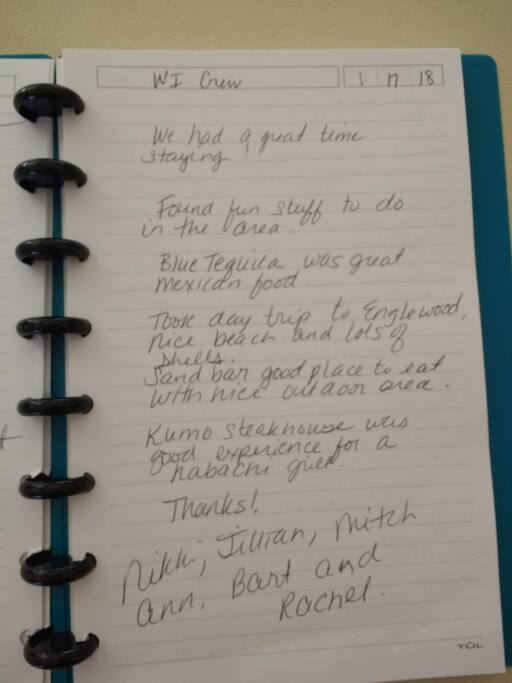 WI Crew
1 17 18
We had a great time
staying!
Found fun stuff to do
in the area.
Blue Tequila was great
mexican food.
Took day trip to Englewood,
nice beach and lots of
shells.
Sand bar good place to eat
with nice outdoor area.
Kumo steakhouse was
good experience for a
habachi grill.
Thanks!
Nikki, Jillian, Mitch
ann, Bart and
Rachel.
TUL